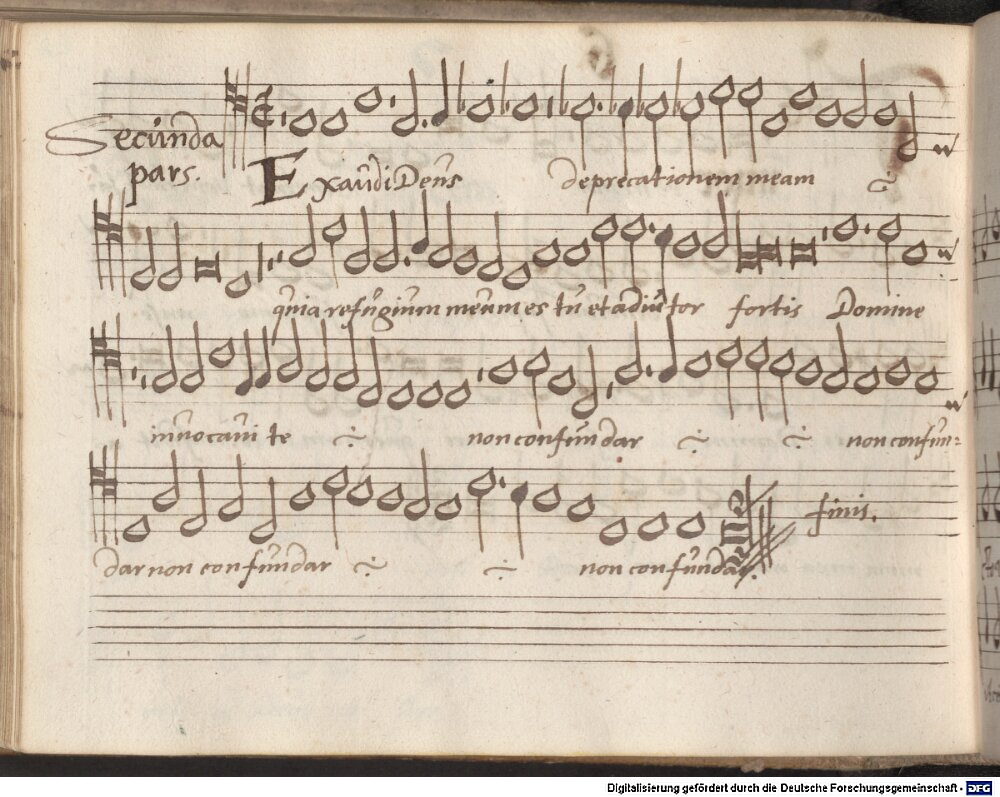 Secunda
pars.
Exaudi Deus deprecationem meam
quia refugium meum es tu et adiutor fortis Domine
invocavi te non confundar non confun=
dar non confundar non confundar.
finis.
Digitalisierung gefördert durch die Deutsche Forschungsgemeinschaft - DFG